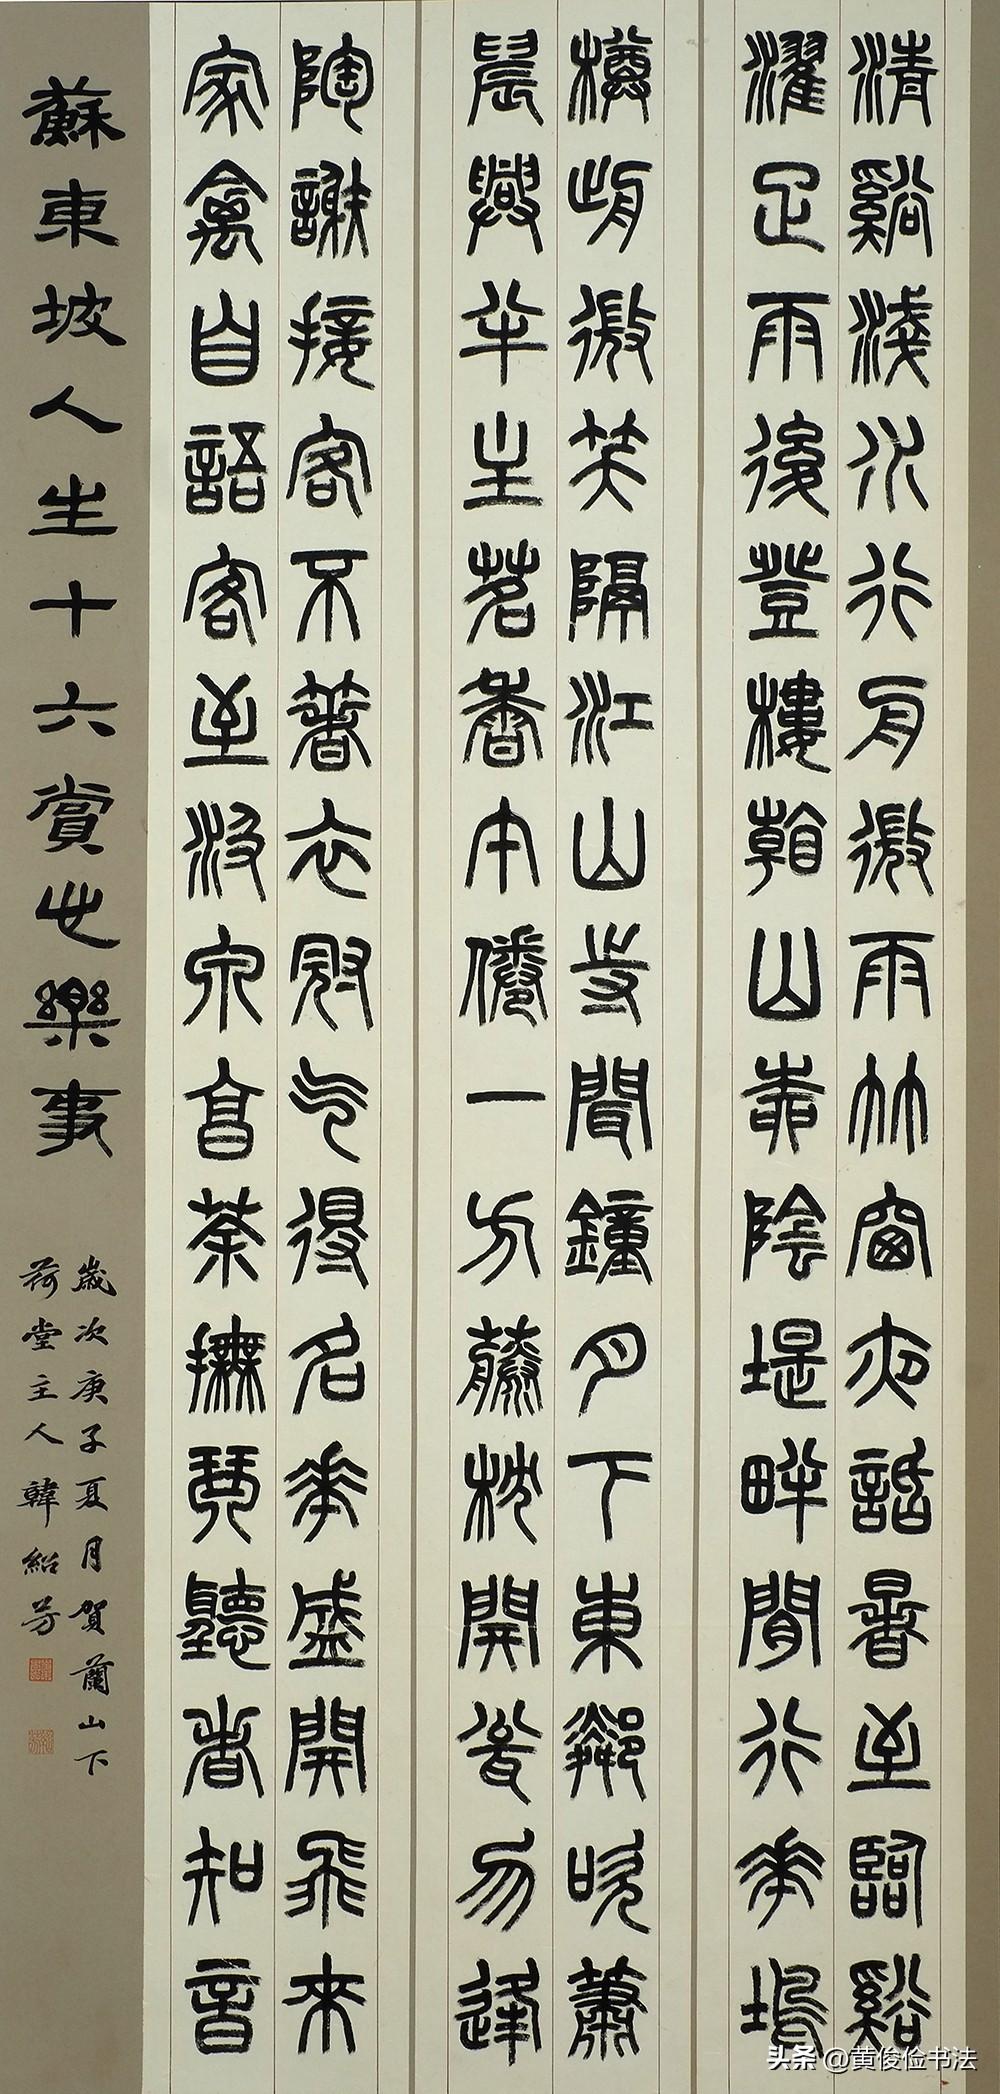 清谿淺水行舟微雨竹窗夜話暑至臨谿
濯足雨後登樓看山柳陰堤畔閒行花塢
樽前微笑隔江山寺聞鐘月下東鄰吹蕭
晨興半炷茗香午倦一方藤枕開甕勿逢
陶謝接客不著衣冠乞得名花盛開飛來
家禽自語客至汲泉烹茶撫琴聽者知音
蘇東坡人生十六賞心樂事
歲次庚子夏月賀蘭山下
荷堂主人韓紹芳
头条 @黄俊俭书法